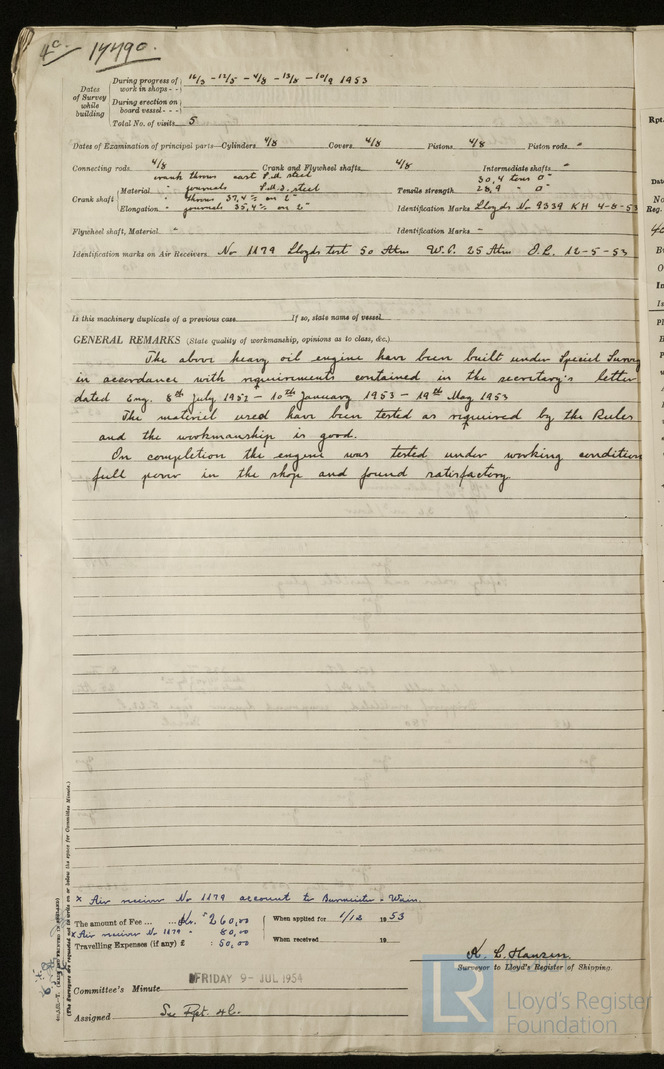 4c. 14490.
Dates of Survey while building
During progress of work in shops - - 16/3 - 12/5 - 4/8 - 13/8 - 10/9 1953
During erection on board vessel - - -
Total No. of visits 5
Dates of Examination of principal parts—Cylinders 4/8 Covers 4/8 Pistons 4/8 Piston rods "
Connecting rods 4/8 Crank and Flywheel shafts 4/8 Intermediate shafts "
Crank shaft
Material crank throws cast S.M. steel
" journals S.M.I. steel
Tensile strength 30,4 tons □"
28,9 " □"
Elongation " throws 37,4% on 2"
" journals 35,4% on 2"
Identification Marks Lloyds No 9339 KH 4-8-53
Flywheel shaft, Material " Identification Marks -
Identification marks on Air Receivers No 1179 Lloyds test 50 Atm W.P. 25 Atm O.L. 12-5-53
Is this machinery duplicate of a previous case If so, state name of vessel
GENERAL REMARKS (State quality of workmanship, opinions as to class, &c.)
The above heavy oil engine have been built under Special Survey
in accordance with requirements contained in the secretary's letter
dated Eng. 8th July 1952 - 10th January 1953 - 19th May 1953
The materiel used have been tested as required by the Rules
and the workmanship is good.
On completion the engine was tested under working condition
full power in the shop and found satisfactory.
x Air receiver No 1179 account to Burmeister & Wain.
The amount of Fee ... ... Kr. 260,00 When applied for 1/12 1953
x Air receiver No 1179 " 80,00
Travelling Expenses (if any) £ : 50,00 When received 19
K. L. Hansen
Surveyor to Lloyd's Register of Shipping.
Committee's Minute FRIDAY 9- JUL 1954
Assigned See Rpt. 4b.
(The Surveyors are requested not to write on or below the space for Committee Minute.)
Rpt.
Reg.
LR
Lloyd's Register
Foundation